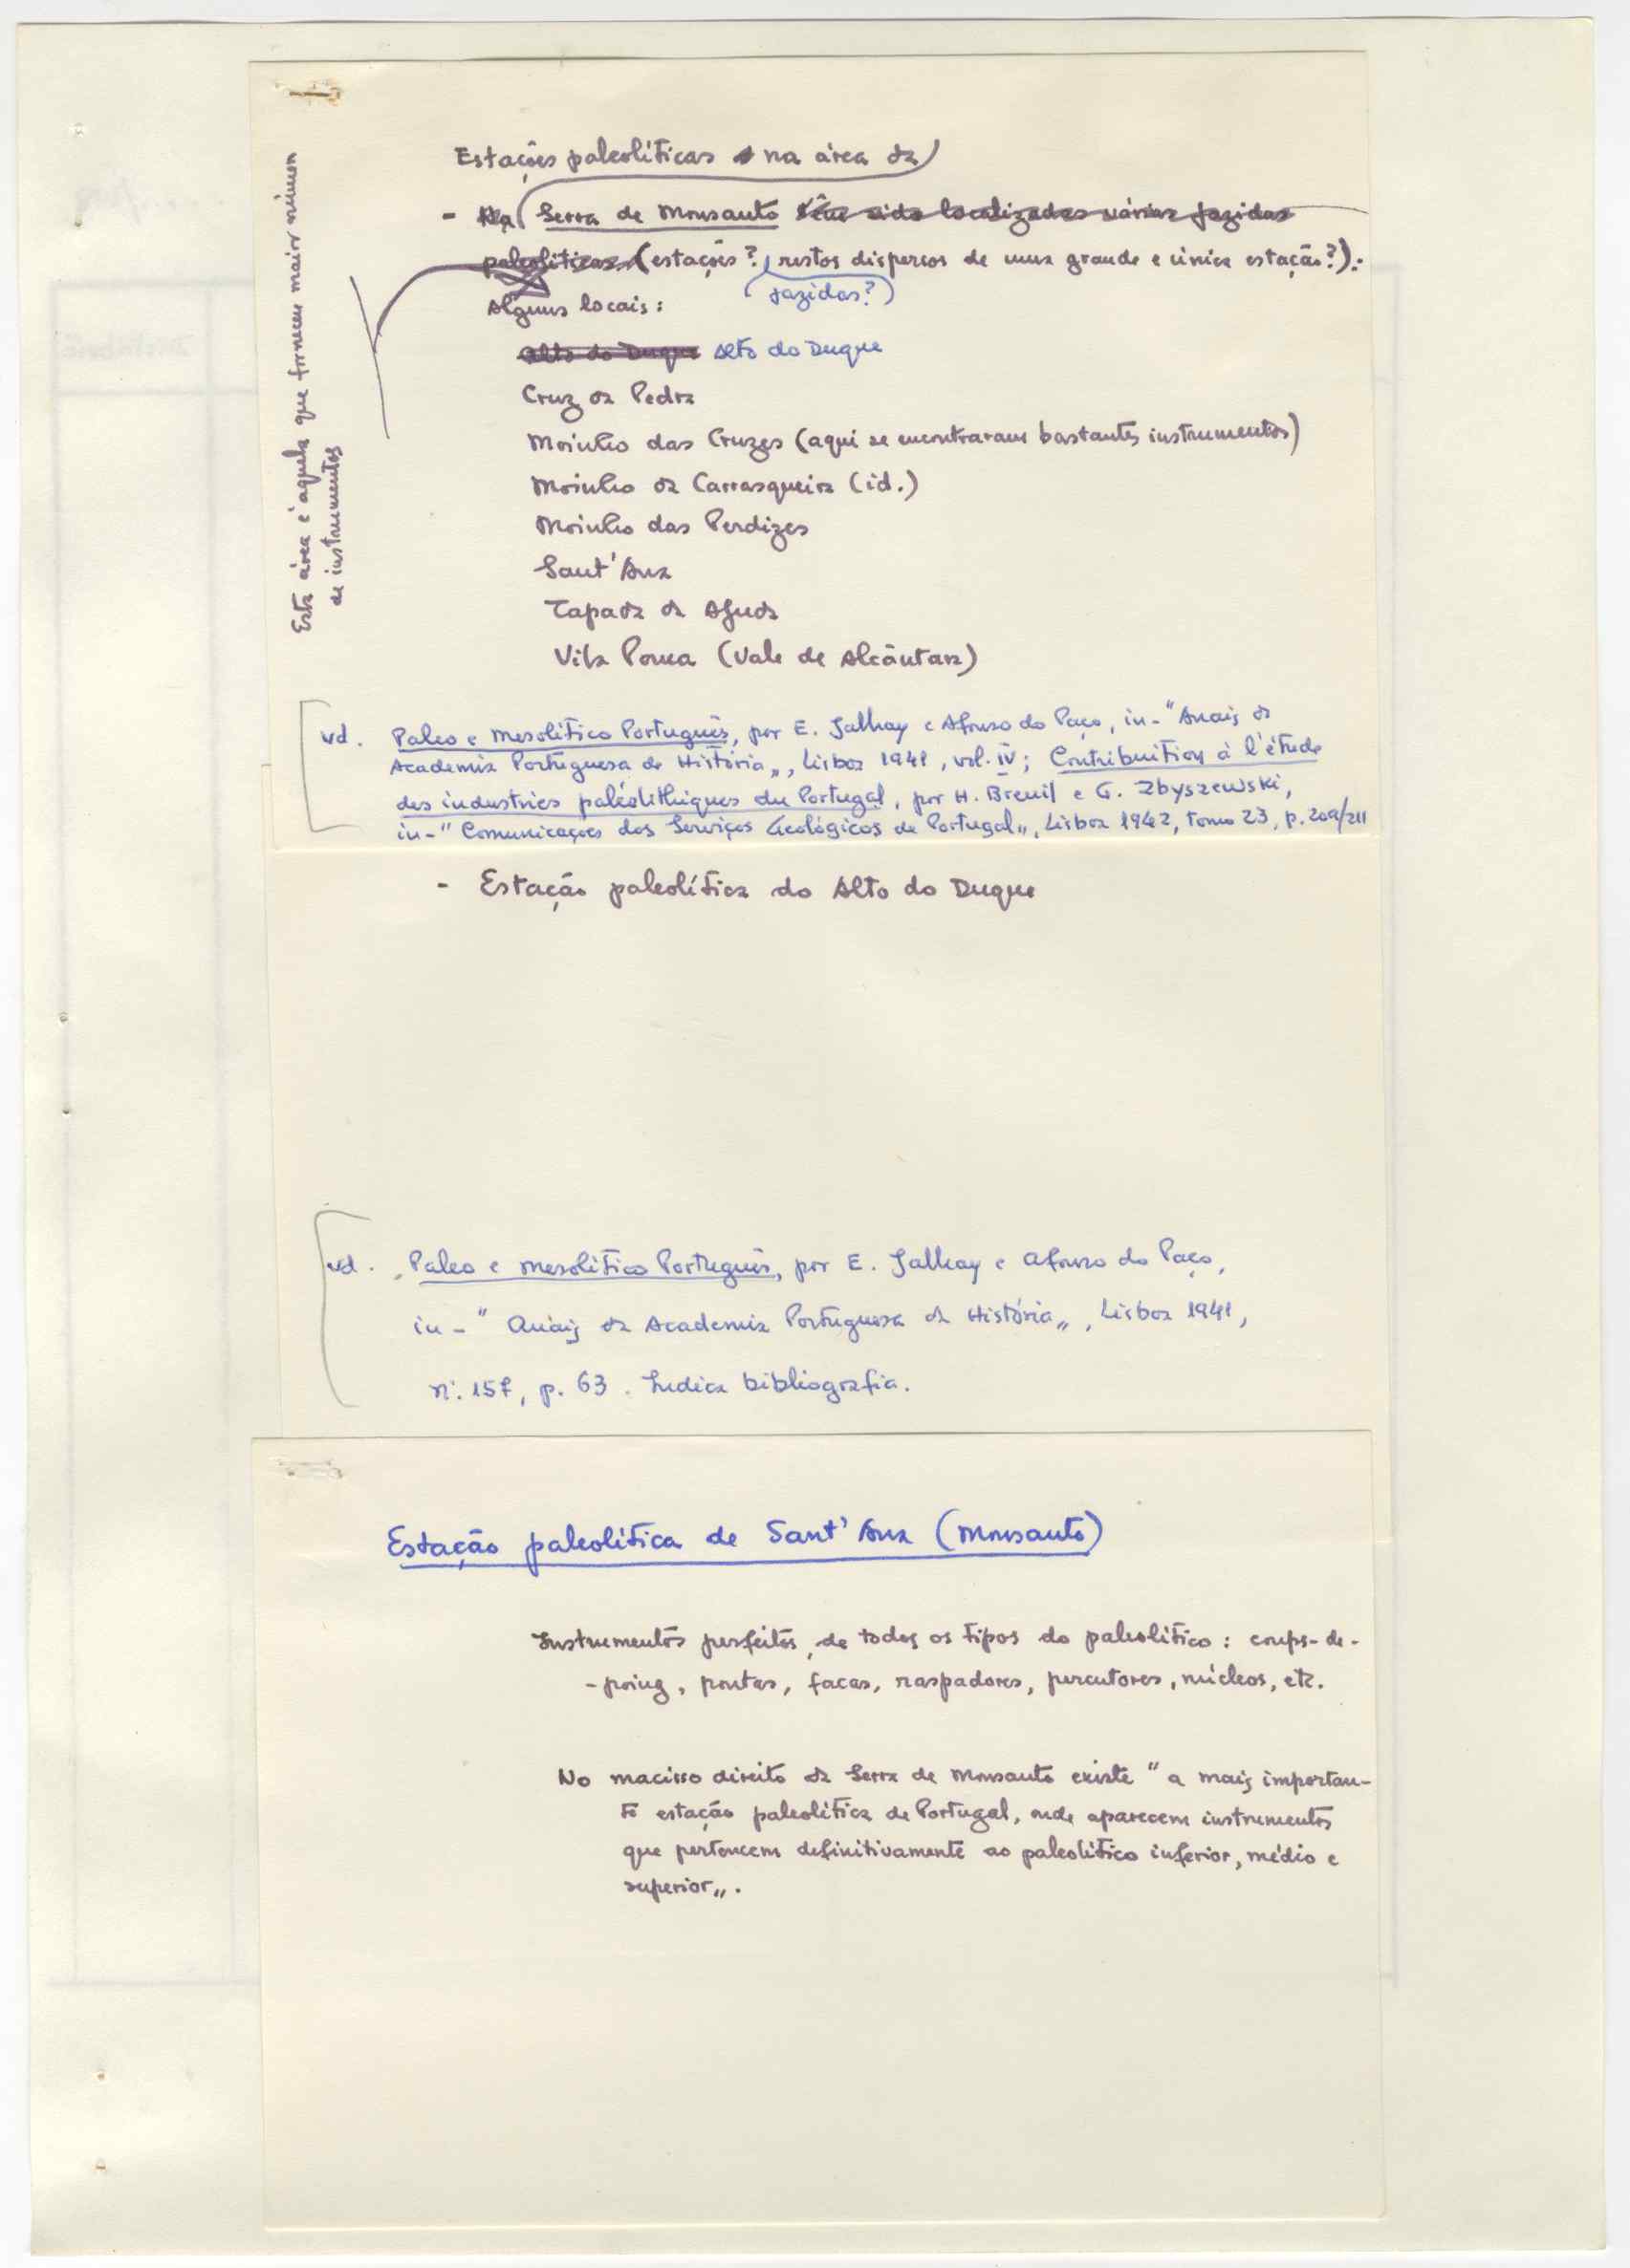 Estações paleolíticas na área da
- Na Serra de Monsanto têm sido localizadas várias jazidas
paleolíticas (estações?, restos dispersos de uma grande e única estação?):
(jazidas?)
Alguns locais:
Alto do Duque Alto do Duque
Cruz da Pedra
Moinho das Cruzes (aqui se encontraram bastantes instrumentos)
Moinho da Carrasqueira (id.)
Moinho das Perdizes
Sant'Ana
Tapada da Ajuda
Vila Pouca (Vale de Alcântara)
Esta área é aquela que forneceu maior número
de instrumentos
vd. Paleo e Mesolítico Português, por E. Jalhay e Afonso do Paço, in-"Anais da
Academia Portuguesa de História", Lisboa 1941, vol. IV; Contribuition à l'étude
des industries paléolithiques du Portugal, por H. Breuil e G. Zbyszewski,
in-"Comunicações dos Serviços Geológicos de Portugal", Lisboa 1942, tomo 23, p. 209/211
- Estação paleolítica do Alto do Duque
vd. Paleo e Mesolítico Português, por E. Jalhay e Afonso do Paço,
in-"Anais da Academia Portuguesa da História", Lisboa 1941,
nº. 157, p. 63. Indica bibliografia.
Estação paleolítica de Sant'Ana (Monsanto)
Instrumentos perfeitos, de todos os tipos do paleolítico: coups-de-
-poing, pontas, facas, raspadores, percutores, núcleos, etc.
No macisso direito da Serra de Monsanto existe "a mais importan-
te estação paleolítica de Portugal, onde aparecem instrumentos
que pertencem definitivamente ao paleolítico inferior, médio e
superior".